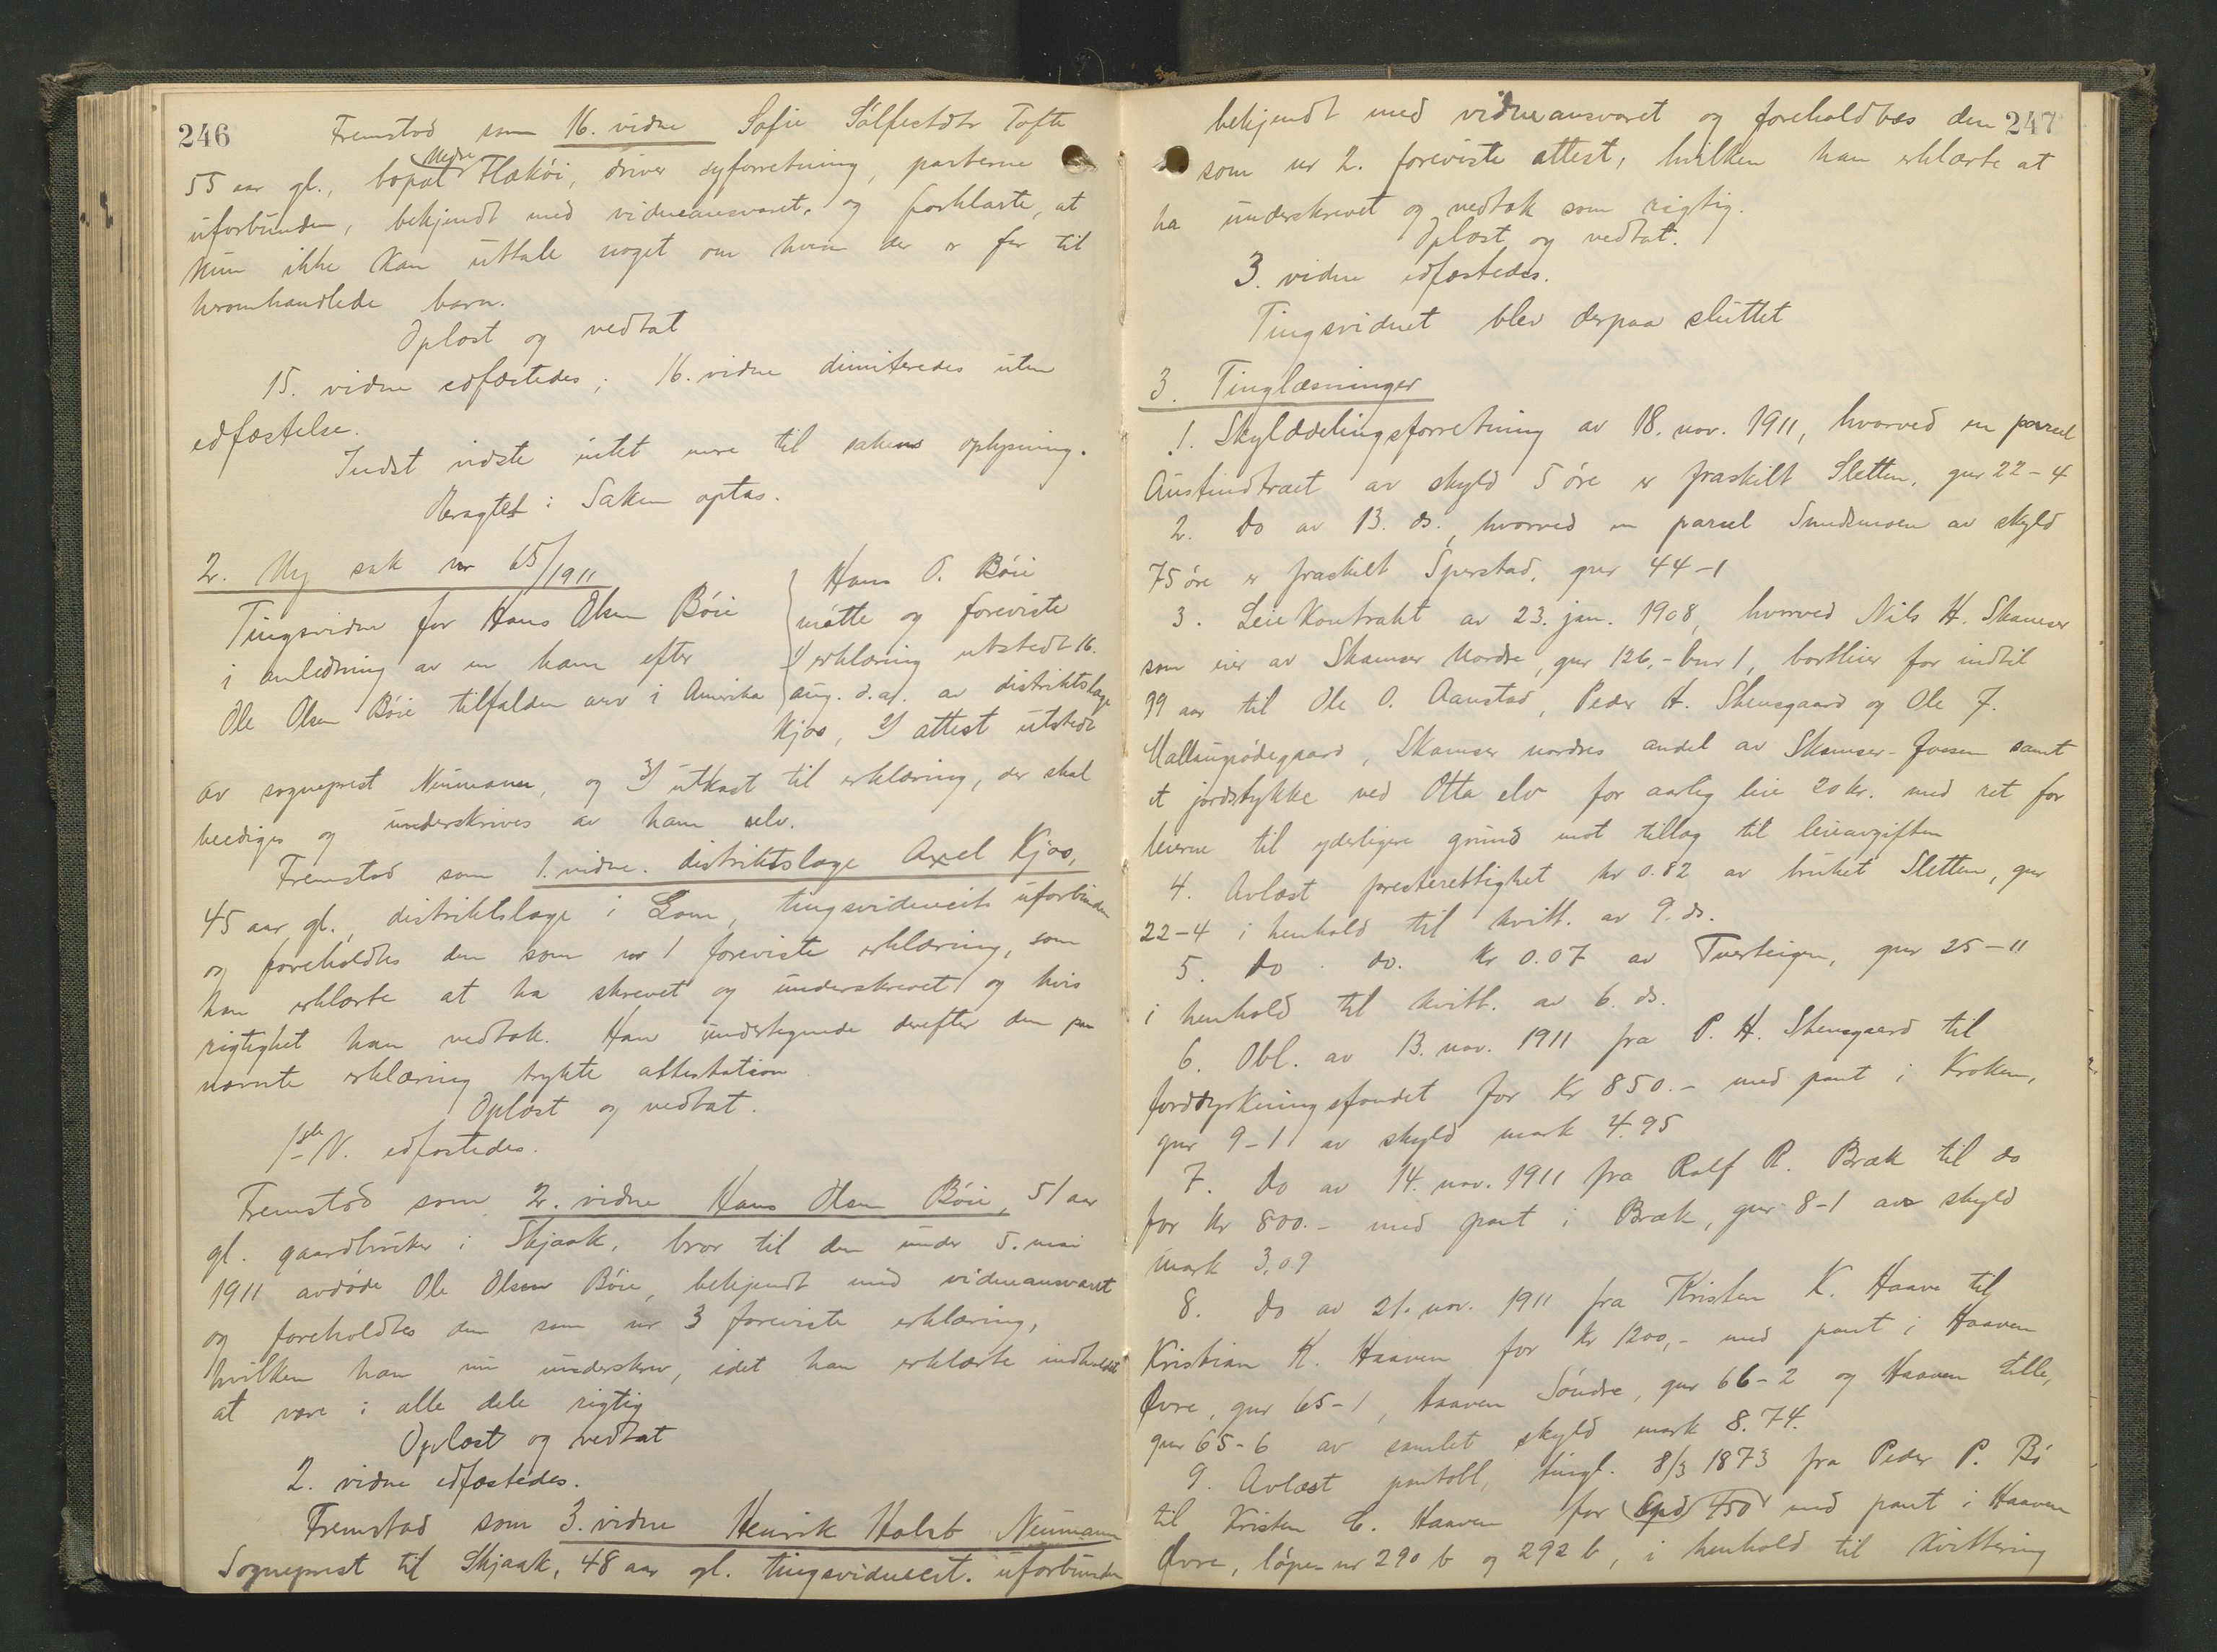 246
Fremstod som 16. vidne Sofie Sølfestdtr Tofte
55 aar gl., bopæl Nedre Flækøi, driver syforretning, parterne
uforbunden, bekjendt med vidneansvaret, og forklarte, at
hun ikke kan uttale noget om hvem der er far til
heromhandlede barn.
Oplæst og vedtat
15. vidne edfæstedes; 16. vidne dimiteredes uten
edfæstelse.
Indst vidste intet mere til sakens oplysning.
Eragtet: Saken optas.
2. Ny sak nr 65/1911
Tingsvidne for Hans Olsen Bøie
i anledning av en ham efter
Ole Olsen Bøie tilfalden arv i Amerika
Hans O. Bøie
møtte og foreviste
1) erklæring utstedt 16.
aug. d.a. av distriktslæge
Kjos, 2) attest utstedt
av sogneprest Neumann, og 3) utkast til erklæring, der skal
beediges og underskrives av ham selv.
Fremstod som 1. vidne. distriktslæge Axel Kjos,
45 aar gl., distriktslæge i Lom, tingsvidnecit. uforbunden
og foreholdtes den som nr 1 foreviste erklæring, som
han erklærte at ha skrevet og underskrevet og hvis
rigtighet han vedtok. Han undertegnede derefter den paa
nævnte erklæring trykte attestation
Oplæst og vedtat.
1ste V. edfæstedes.
Fremstod som 2. vidne Hans Olsen Bøie, 51 aar
gl. gaardbruker i Skjaak, bror til den under 5. mai
1911 avdøde Ole Olsen Bøie, bekjendt med vidneansvaret
og foreholdtes den som nr 3 foreviste erklæring,
hvilken han nu underskrev, idet han erklærte indholdet
at være i alle dele rigtig
Oplæst og vedtat
2. vidne edfæstedes.
Fremstod som 3. vidne Henrik Holst Neumann
Sogneprest til Skjaak, 48 aar gl. tingsvidnecit. uforbunden
247
bekjendt med vidneansvaret og foreholdtes den
som nr 2. foreviste attest, hvilken han erklærte at
ha underskrevet og vedtok som rigtig.
Oplæst og vedtat.
3. vidne edfæstedes.
Tingsvidnet blev derpaa sluttet
3. Tinglæsninger
1. Skylddelingsforretning av 18. nov. 1911, hvorved en parcel
Austindtræet av skyld 5 øre er fraskilt Sletten, gnr 22-4
2. Do av 13. ds., hvorved en parcel Smedsmoen av skyld
75 øre er fraskilt Sperstad, gnr 44-1
3. Leiekontrakt av 23. jan. 1908, hvorved Nils H. Skamsar
som eier av Skamsar Nordre, gnr 126,- bnr 1, bortleier for indtil
99 aar til Ole O. Aanstad, Peder H. Stensgaard og Ole J.
Mallungødegaard, Skamsar nordres andel av Skamsar-fossen samt
et jordstykke ved Otta elv for aarlig leie 20 kr. med ret for
leierne til yderligere grund mot tillæg til leieavgiften
4. Avløst presterettighet kr 0.82 av bruket Sletten, gnr
22-4 i henhold til kvitt. av 9. ds.
5. Do. do. kr 0.07 av Tverteigen, gnr 25-11
i henhold til kvitt. av 6. ds.
6. Obl. av 13. nov. 1911 fra P. H. Stensgaard til
jorddyrkningsfondet for kr 850.- med pant i Kroken,
gnr 9-1 av skyld mark 4.95
7. Do av 14. nov. 1911 fra Rolf R. Bræk til do
for kr 800.- med pant i Bræk, gnr 8-1 av skyld
mark 3.09
8. Do av 21. nov. 1911 fra Kristen K. Haave til
Kristian K. Haaven for kr 1200,- med pant i Haaven
Øvre, gnr 65-1, Haaven Søndre, gnr 66-2 og Haaven Lille,
gnr 65-6 av samlet skyld mark 8.74.
9. Avlæst pantobl, tingl. 8/3 1873 fra Peder P. Bø
til Kristen C. Haaven for Spd 450 med pant i Haaven
Øvre, løpe-nr 290 b og 292 b, i henhold til kvittering